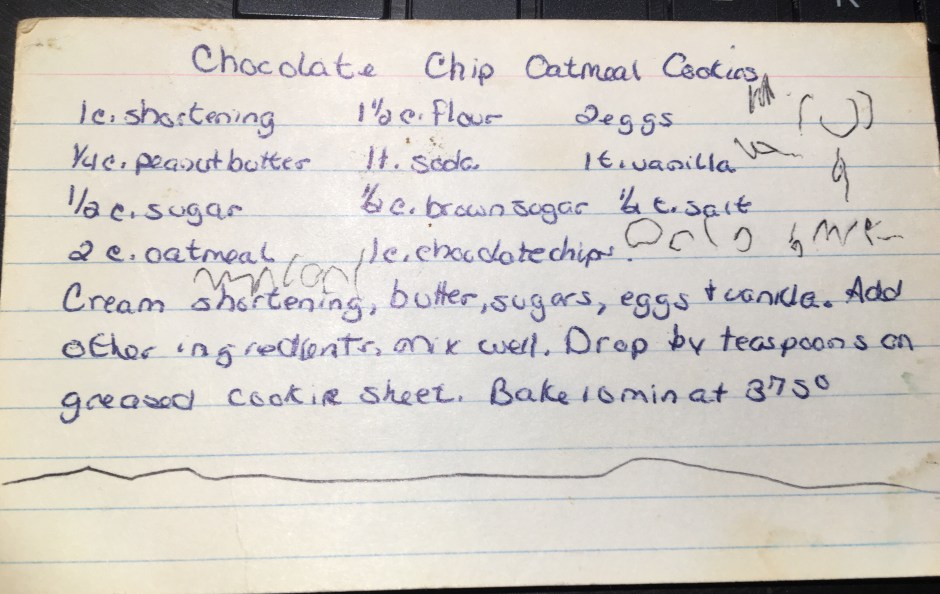 Chocolate Chip Oatmeal Cookies
1c. shortening 1 1/2 c. flour 2 eggs
1/4 c. peanut butter 1 t. soda 1 t. vanilla
1/2 c. sugar 1/2 c. brown sugar 1/2 t. salt
2 c. oatmeal 1c. chocolate chips.
Cream shortening, butter, sugars, eggs + vanilla. Add
other ingredients, mix well. Drop by teaspoons on
greased cookie sheet. Bake 10 min at 375°